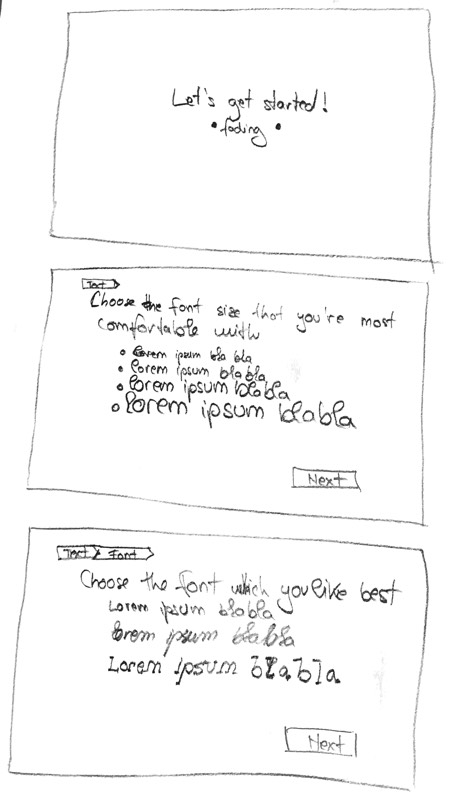 Let's get started!
• fading •
Text
Choose the font size that you're most
comfortable with
• lorem ipsum bla bla
• lorem ipsum blabla
• lorem ipsum blabla
• lorem ipsum blabla
Next
Text Font
Choose the font which you like best
Lorem ipsum blabla
lorem ipsum blabla
Lorem ipsum blabla
Next